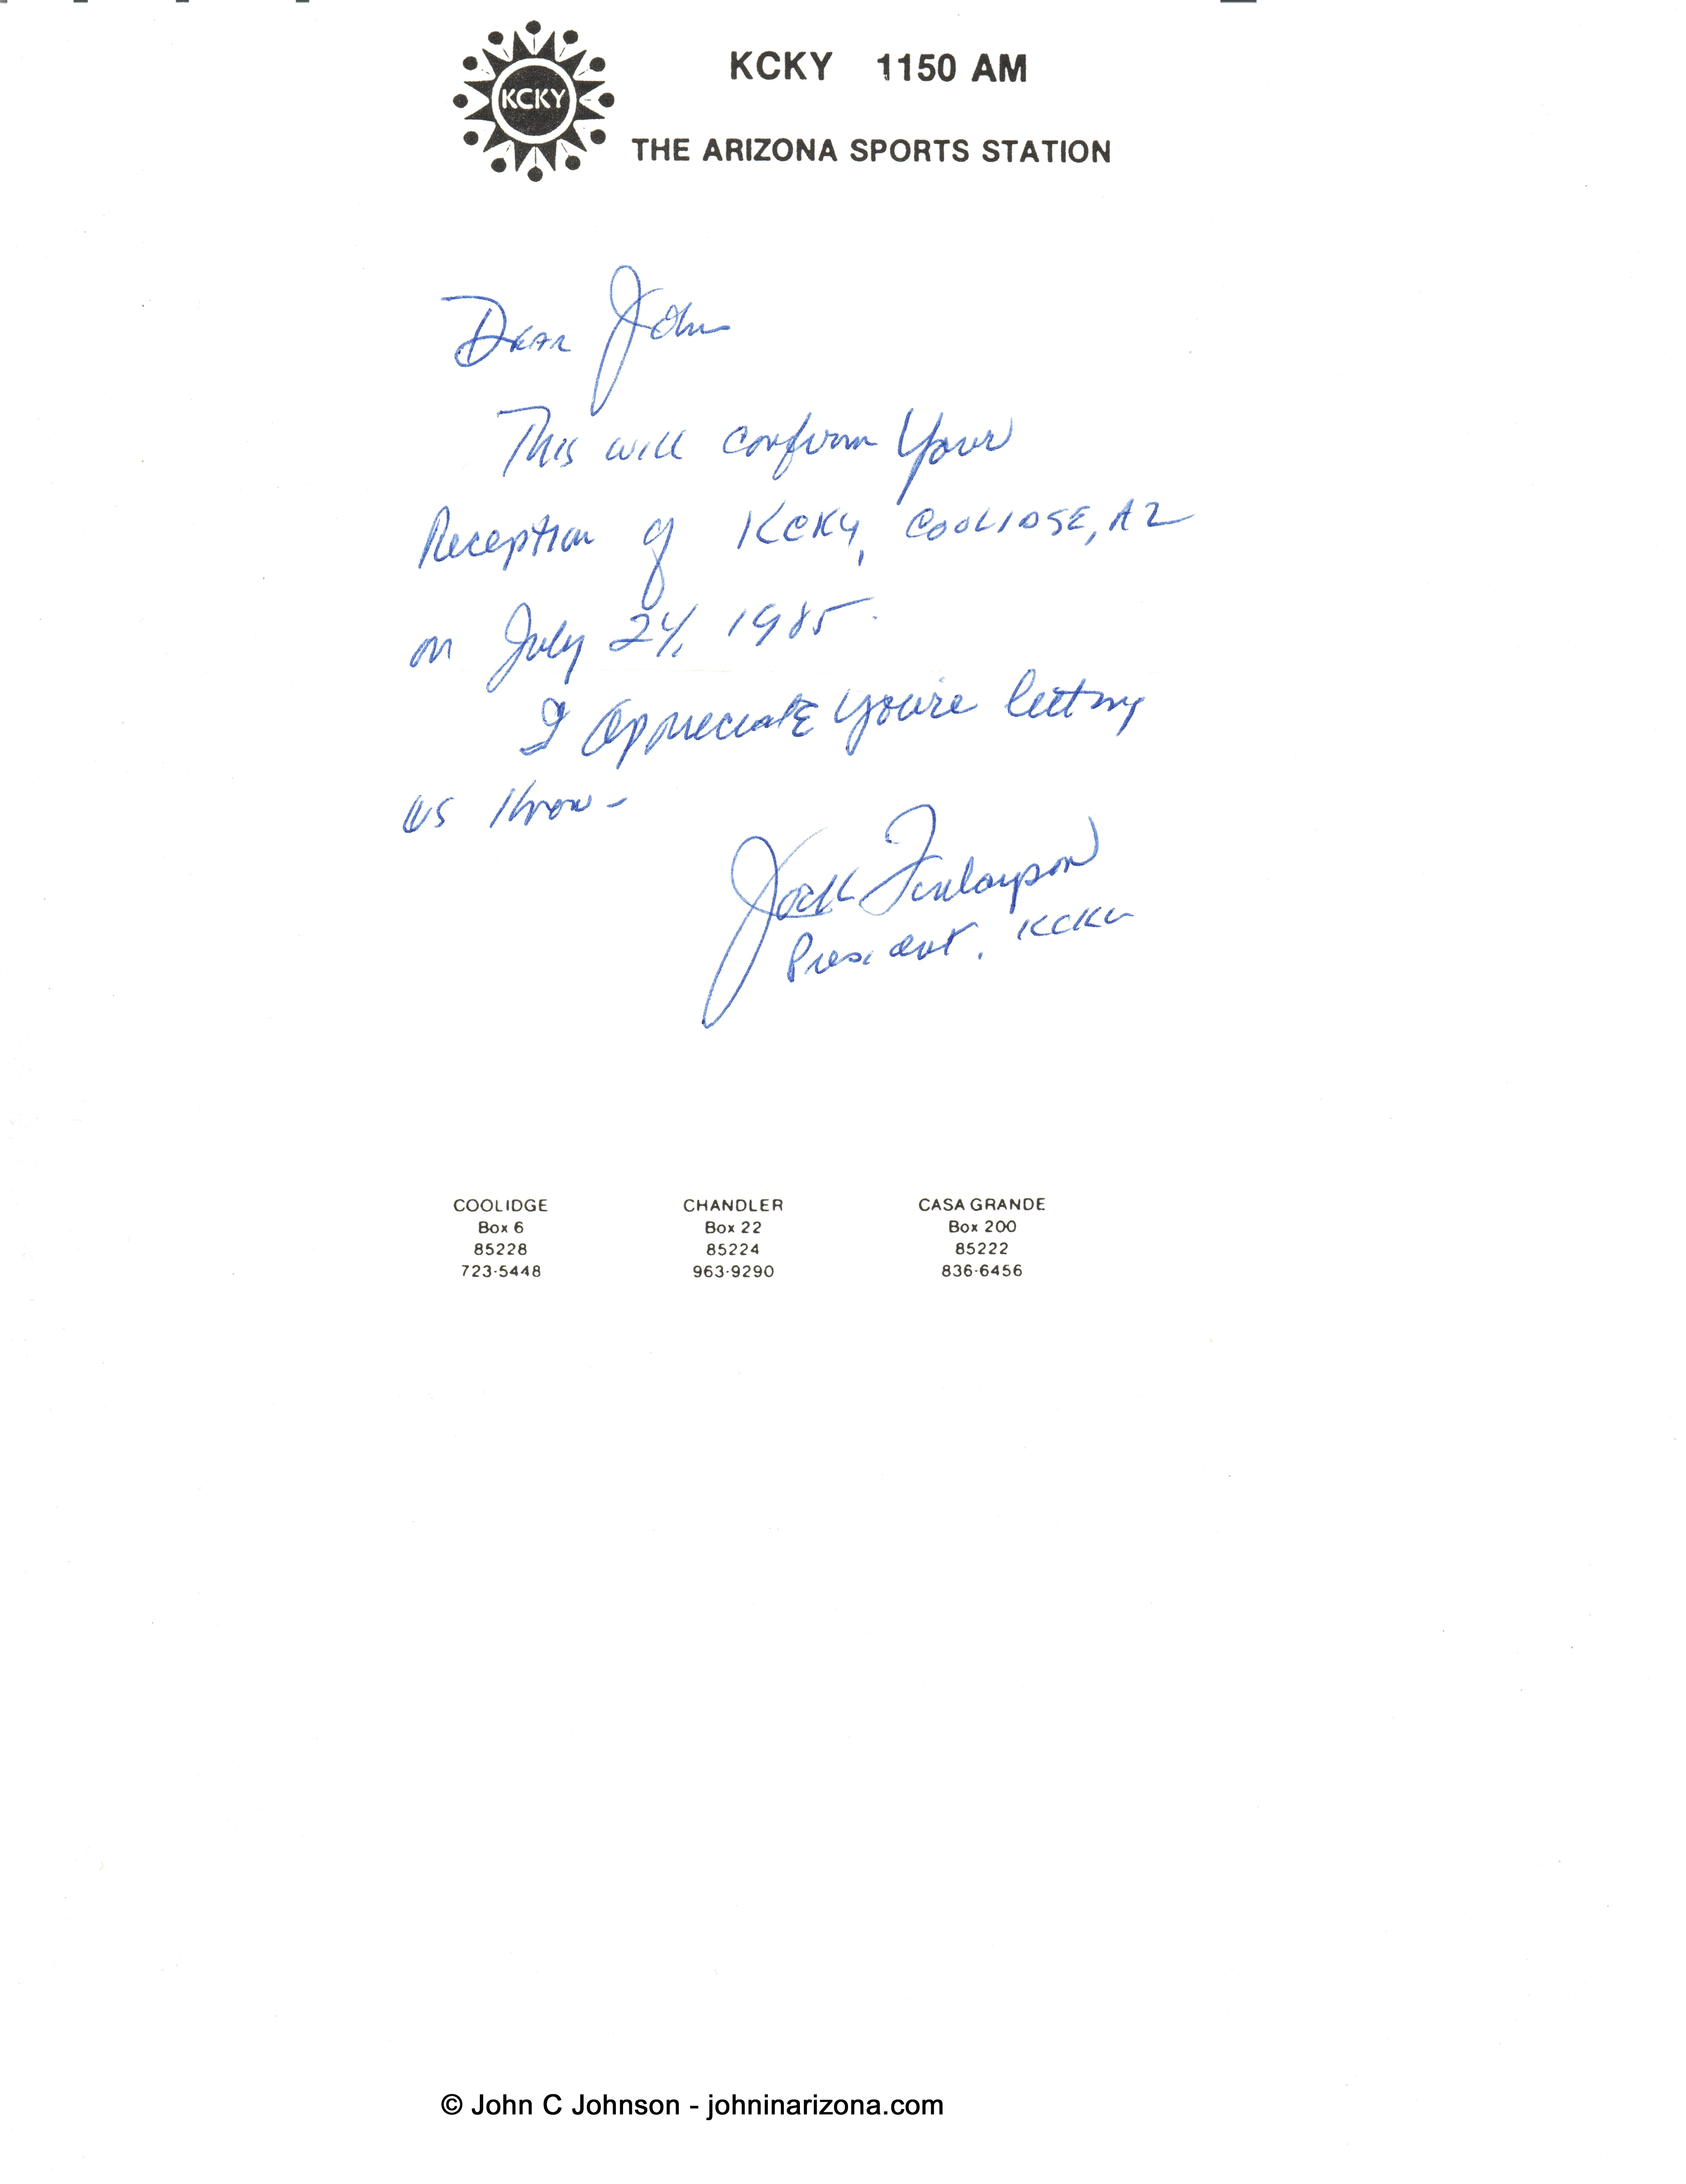 KCKY
KCKY 1150 AM
THE ARIZONA SPORTS STATION
Dear John
This will confirm Your
Reception of KCKY, COOLIDGE, AZ
on July 24, 1985.
I Appreciate You're letting
us know -
Jack Finlayson
President, KCKY
COOLIDGE
Box 6
85228
723-5448
CHANDLER
Box 22
85224
963-9290
CASA GRANDE
Box 200
85222
836-6456
© John C Johnson - johninarizona.com